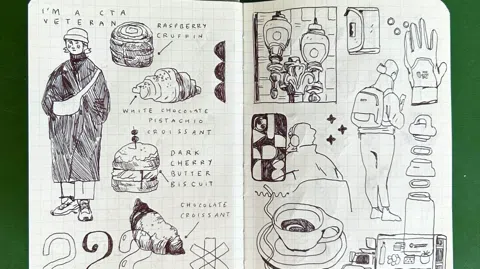 I'M A CTA
VETERAN
RASPBERRY
CRUFFIN
WHITE CHOCOLATE
PISTACHIO
CROISSANT
DARK
CHERRY
BUTTER
BISCUIT
CHOCOLATE
CROISSANT
2??
*